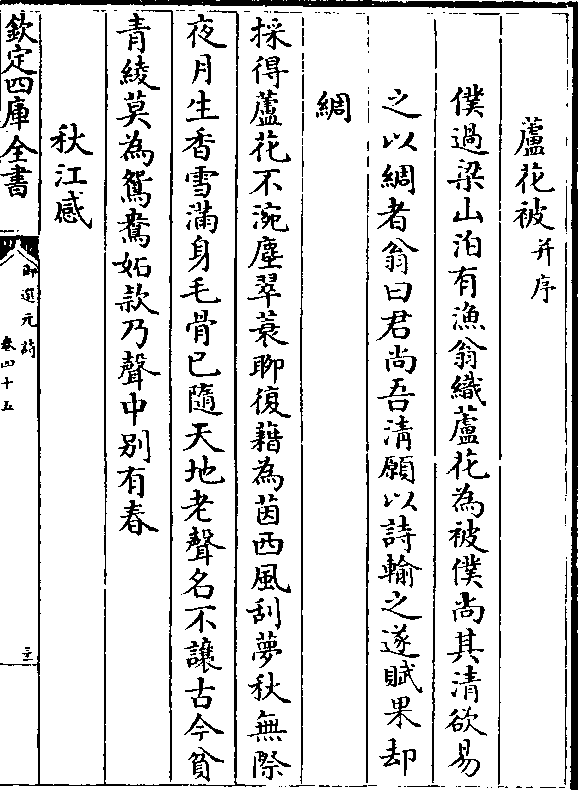 蘆花被并序
僕過梁山泊有漁翁織蘆花為被僕尚其清欲易
之以綢者翁曰君尚吾清願以詩輸之遂賦果却
綢
採得蘆花不涴塵翠蓑聊復藉為茵西風刮夢秋無際
夜月生香雪滿身毛骨已隨天地老聲名不讓古今貧
青綾莫為鴛鴦妬款乃聲中别有春
秋江感
欽定四庫全書
御選元詩
卷四十五